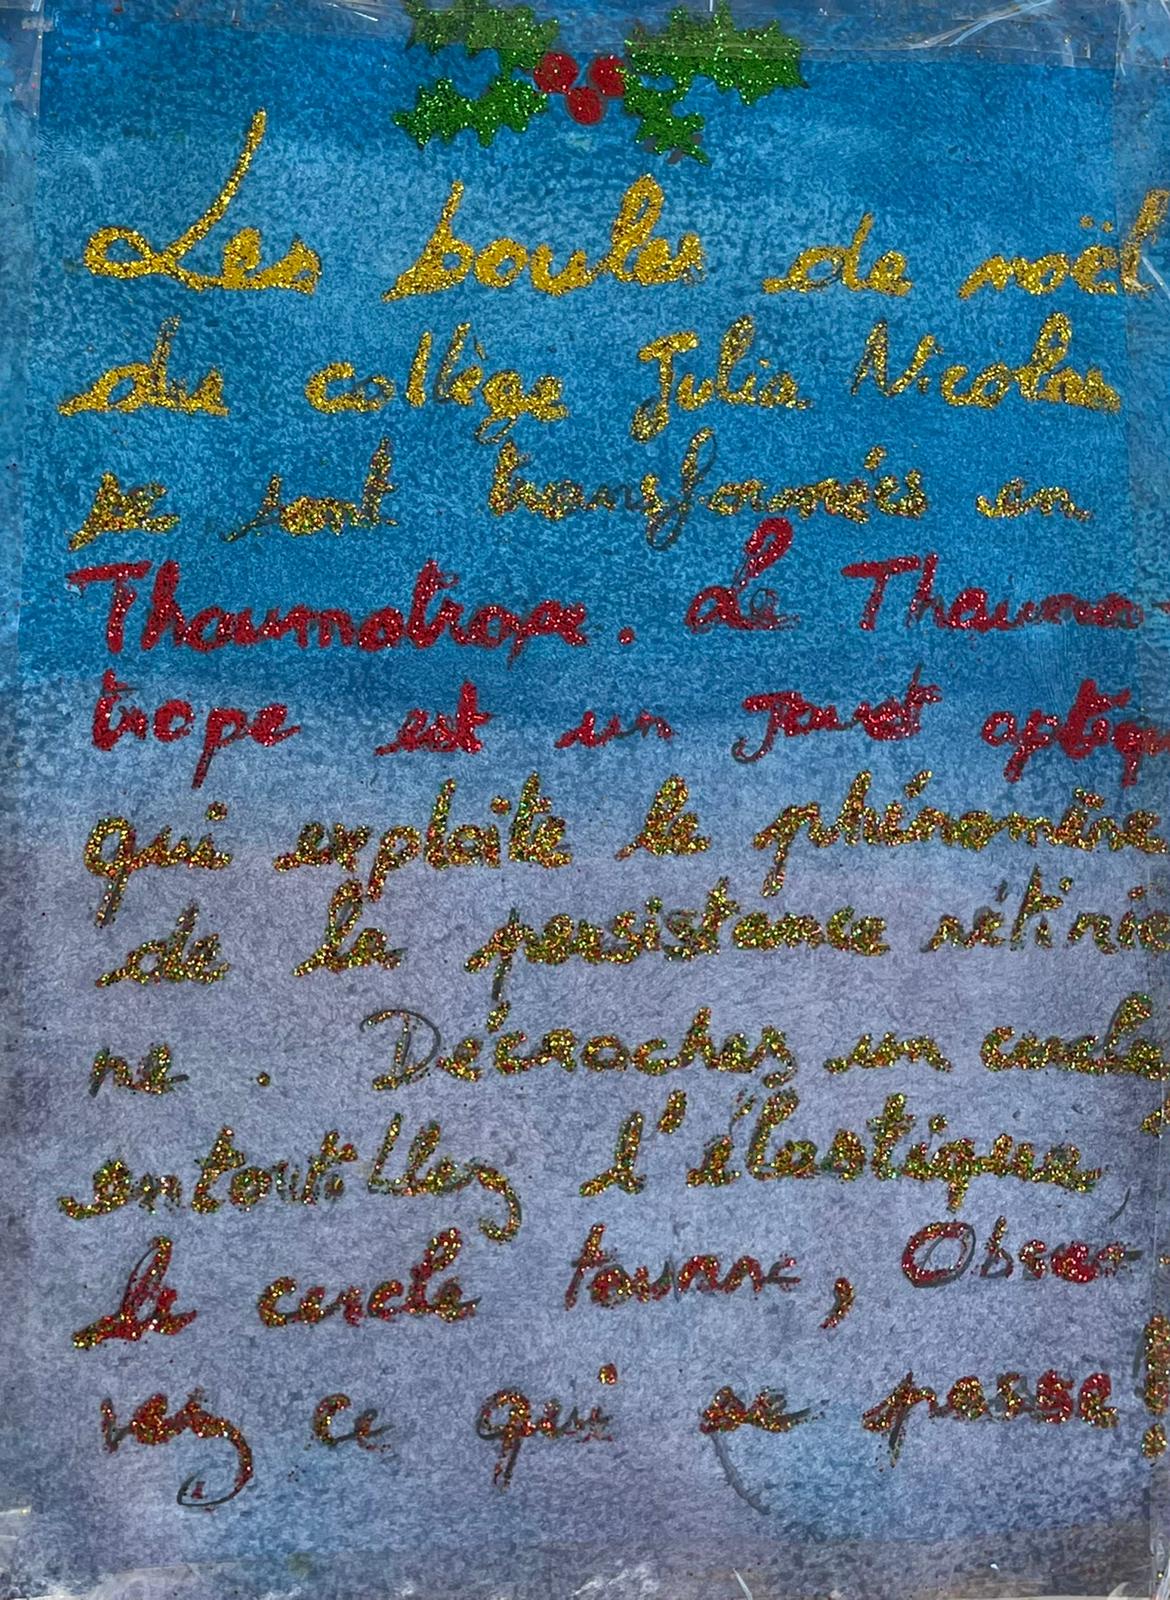 Les boules de noël
du collège Julie Nicolas
se sont transformées en
Thaumatrope. Le Thauma-
trope est un jouet optiq
qui exploite le phénomène
de la persistance rétinie
ne. Décrochez un cercle
entortillez l'élastique,
le cercle tourne, Obser-
vez ce qui se passe!